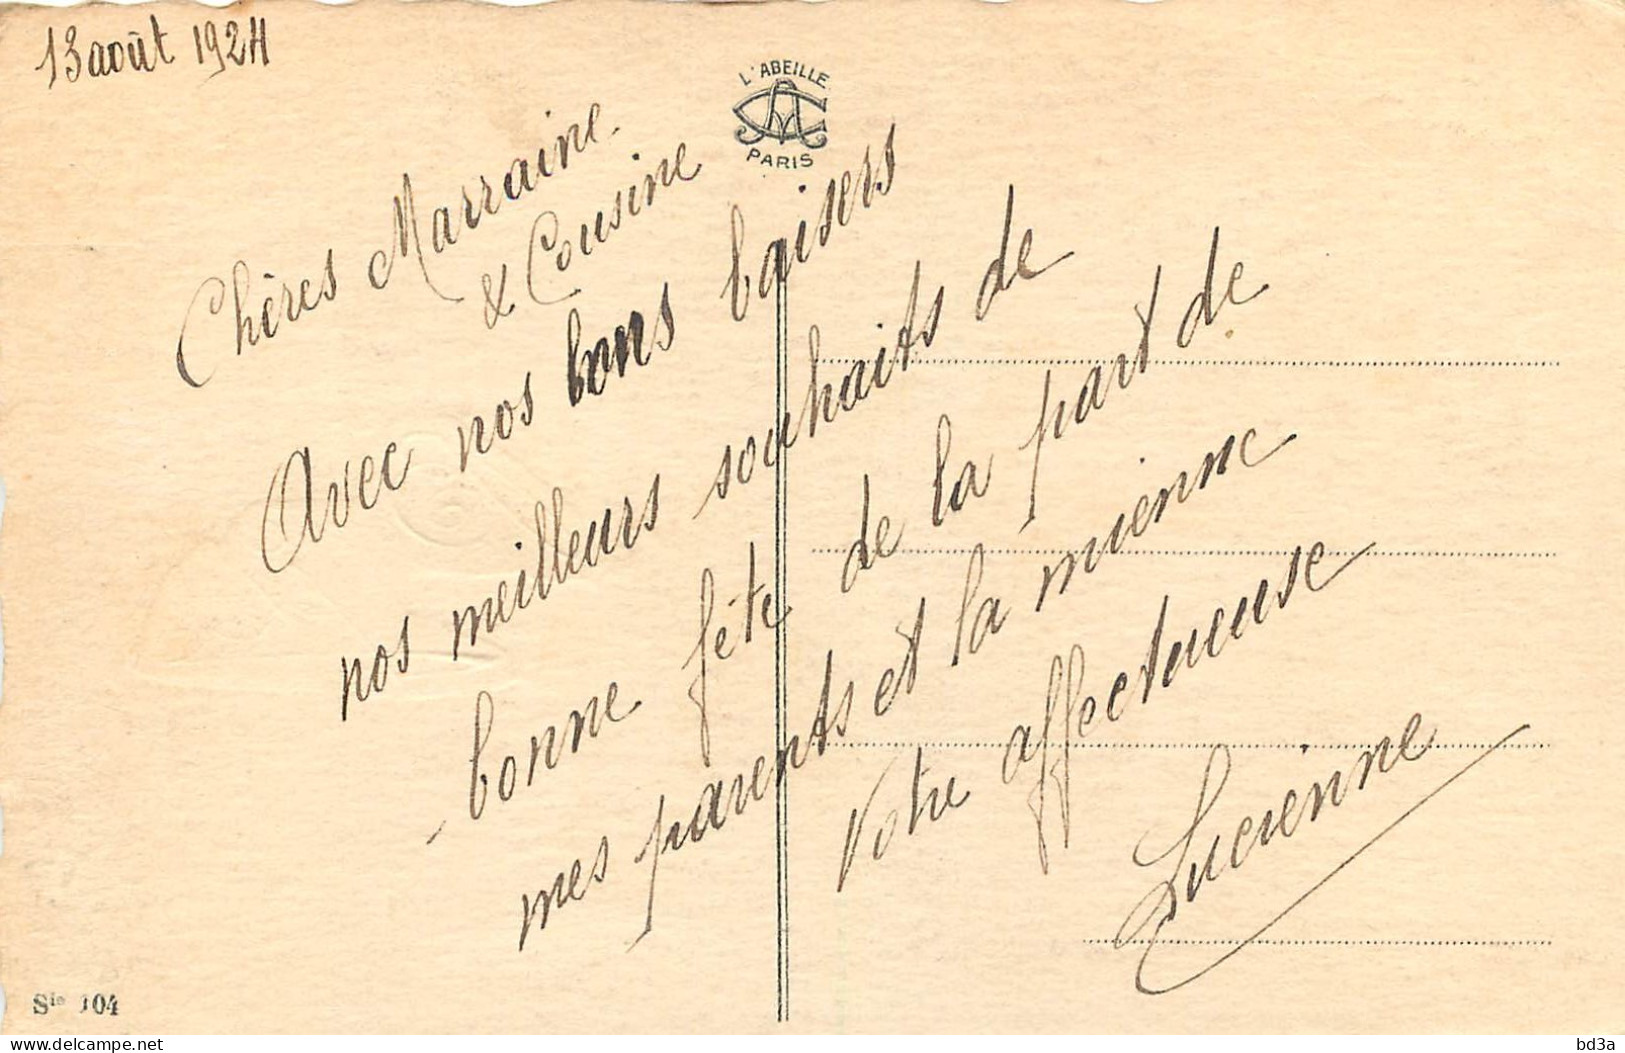 13 août 1924
L'ABEILLE
PARIS
Chères Marraine
& Cousine
Avec nos bons baisers
nos meilleurs souhaits de
bonne fête de la part de
mes parents et la mienne
Votre affectueuse
Lucienne
Sie 104
bd3a
delcampe.net